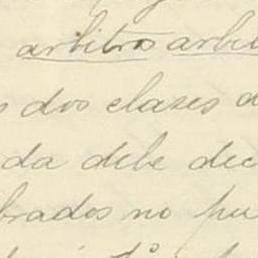 arbitros arbi
s dos clases d
da debe dec
brados no pu